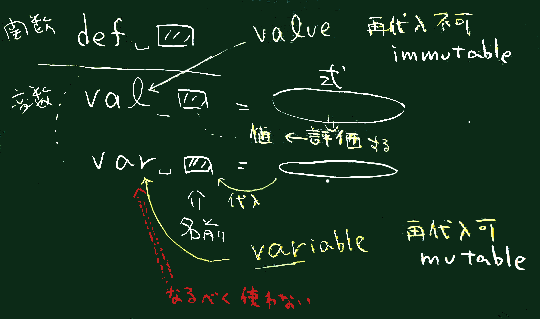 関数 def␣ value 再代入不可
immutable
変数 val␣ = 式
値 ← 評価する
var␣ =
名前 代入
variable 再代入可
mutable
なるべく使わない